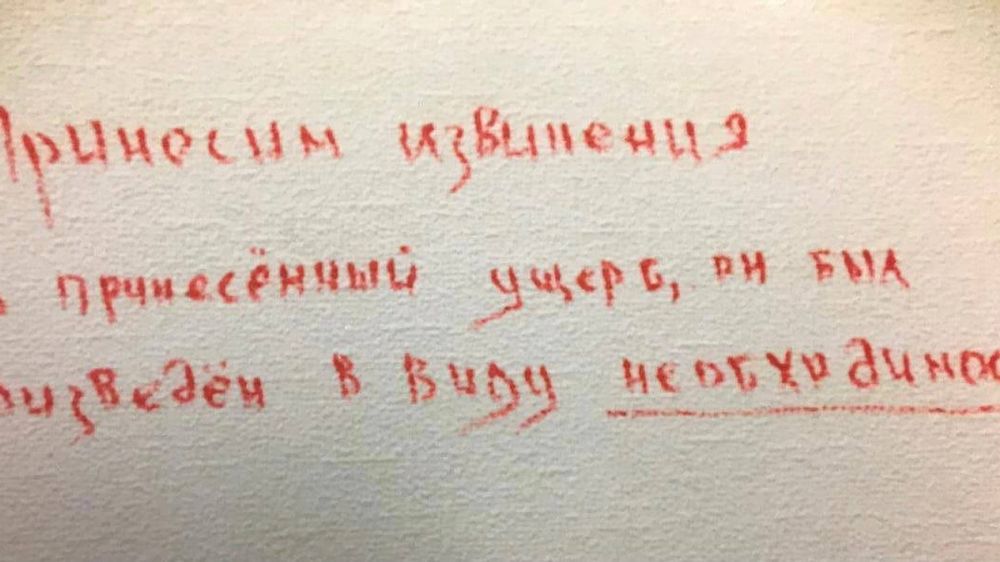 Приносим извинения
принесённый ущерб, он был
оизведён в виду необходимос